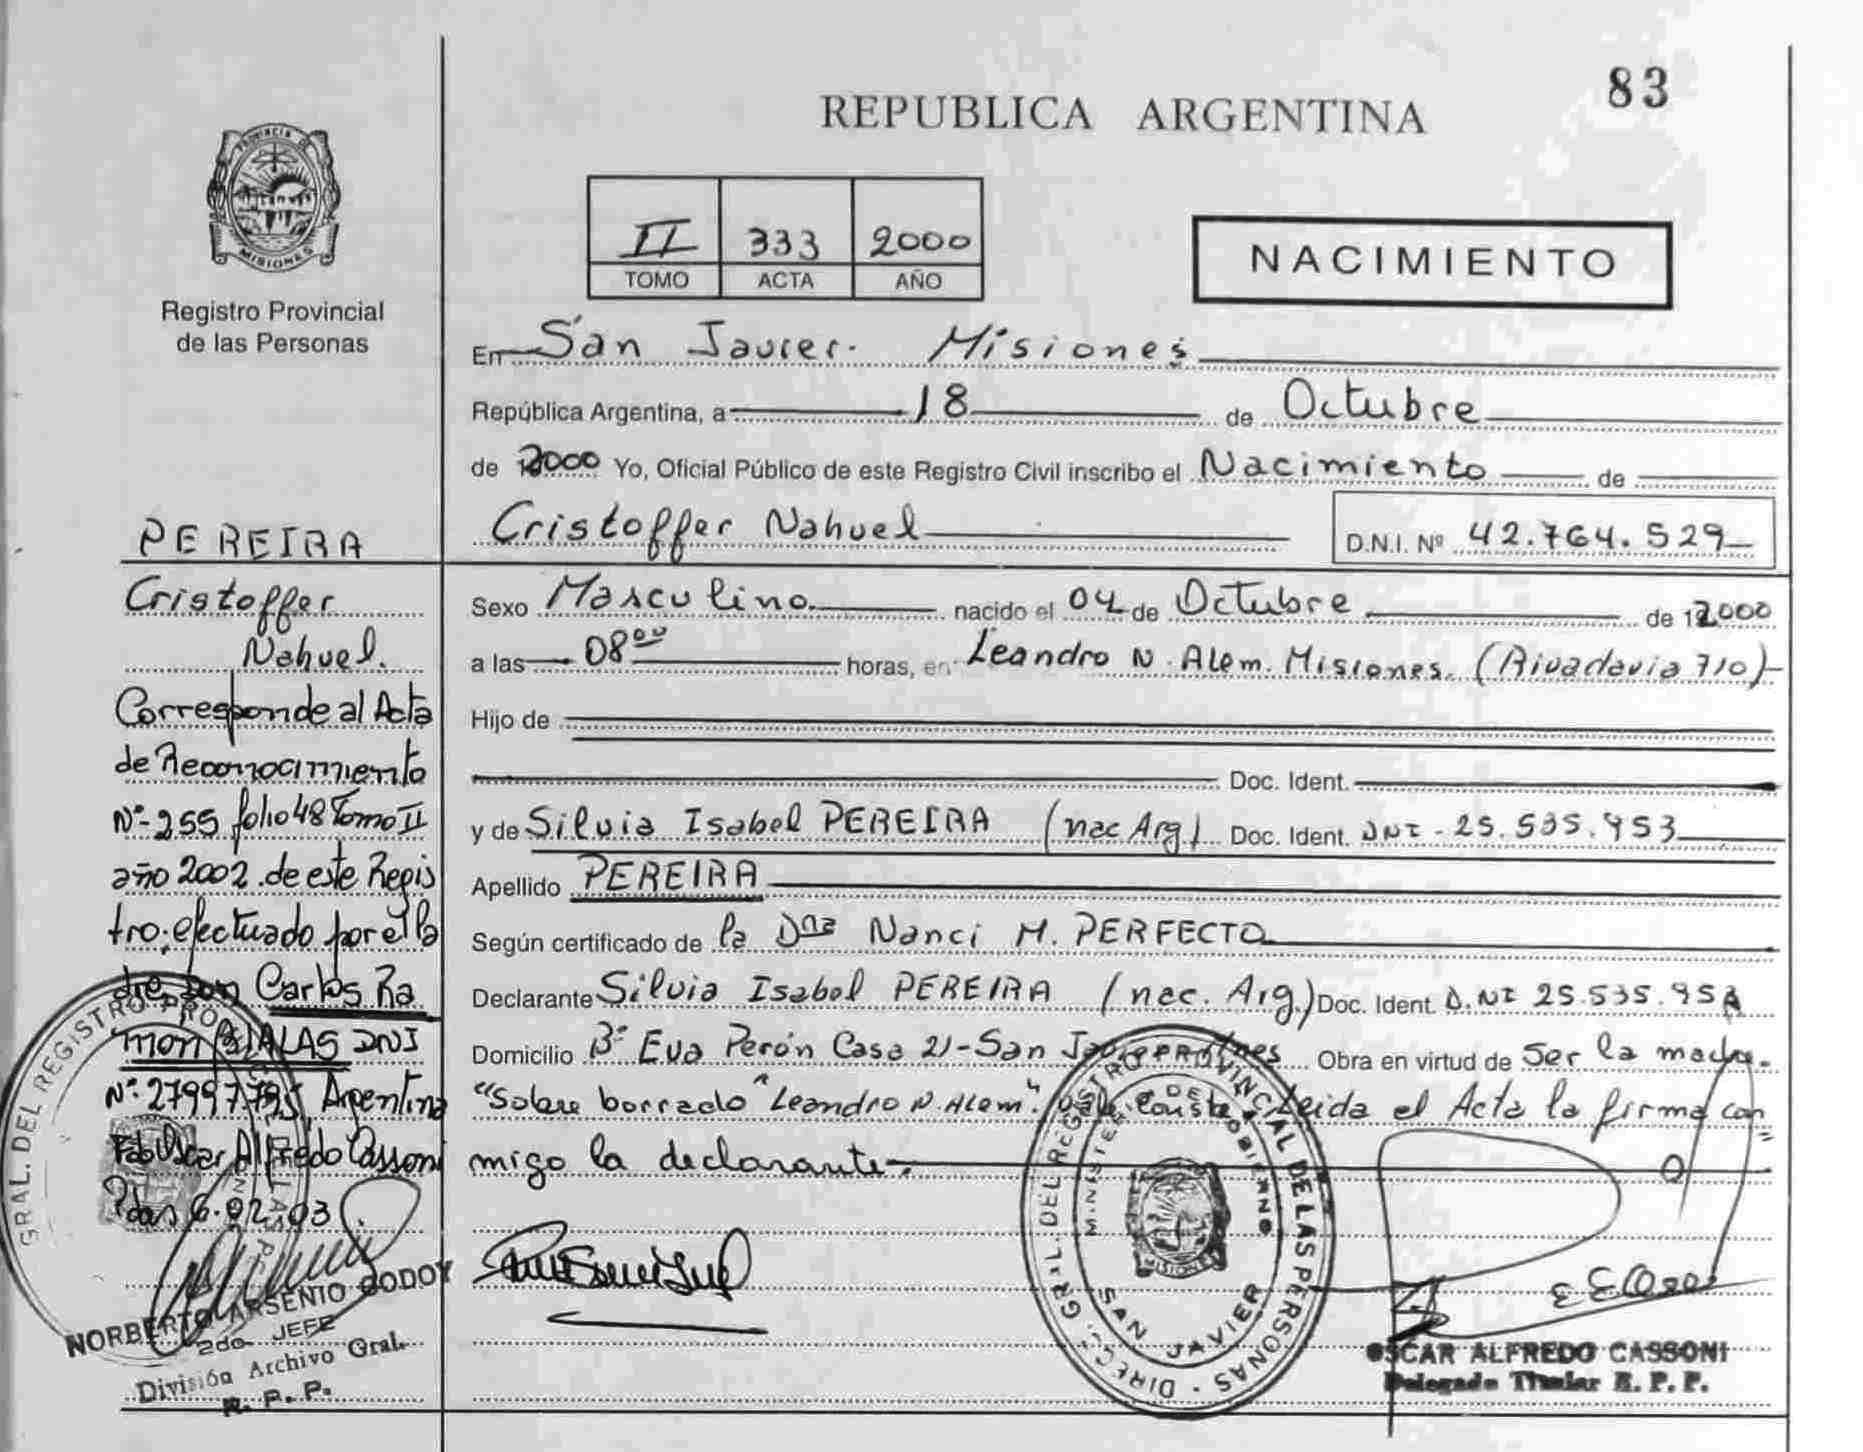 83
REPUBLICA ARGENTINA
PROVINCIA DE
MISIONES
Registro Provincial
de las Personas
II 333 2000
TOMO ACTA AÑO
NACIMIENTO
En San Javier. Misiones
República Argentina, a 18 de Octubre
de 2000 Yo, Oficial Público de este Registro Civil inscribo el Nacimiento de
Cristoffer Nahuel D.N.I. Nº 42.764.529
Sexo Masculino. nacido el 04 de Octubre de 2000
a las 08 00 horas, en Leandro N. Alem. Misiones. (Rivadavia 710)
Hijo de
Doc. Ident.
y de Silvia Isabel PEREIRA (nac Arg) Doc. Ident. DNI - 25.535.953
Apellido PEREIRA
Según certificado de la Dra Nanci M. PERFECTO
Declarante Silvia Isabel PEREIRA (nac. Arg.) Doc. Ident. D.NI 25.535.953
Domicilio Bº Eva Perón Casa 21-San Obra en virtud de Ser la madre.
"Sobre borrado "Leandro N. Alem". Vale. Conste. Leida el Acta la firma con
migo la declarante.
PEREIRA
Cristoffer
Nahuel.
Corresponde al Acta
de Reconocimiento
Nº-255 folio 48 Tomo II
año 2002 de este Regis
tro, efectuado por el Pa
dre Don Carlos Ra
mon DNI
Argentina
Fdo Oscar Alfredo Cassoni
Pdas 6.02.03
GRAL. DEL REGISTRO
NORBERTO ARSENIO GODOY
2do JEFE
División Archivo Gral.
R. P. P.
DIRECC. GRAL. DEL REGISTRO PROVINCIAL DE LAS PERSONAS
MINISTERIO DE GOBIERNO
MISIONES
SAN JAVIER
OSCAR ALFREDO CASSONI
Delegado Titular R. P. P.